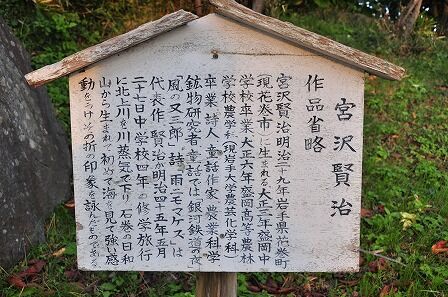 宮沢賢治
作品省略
宮沢賢治明治二十九年岩手県花巻町
(現花巻市)に生まれる大正三年盛岡中
学校卒業大正六年盛岡高等農林
学校農学科(現岩手大学農芸化学科)
卒業 詩人 童話作家 農業科学
鉱物研究者 童話では「銀河鉄道の夜」
「風の又三郎」詩「雨ニモマケズ」は
代表作 賢治が明治四十五年五月
二十七日中学校四年の修学旅行
に北上川を川蒸気で下り石巻の日和
山から生まれて初めて海を見て強い感
動をうけその折の印象を詠んだものである